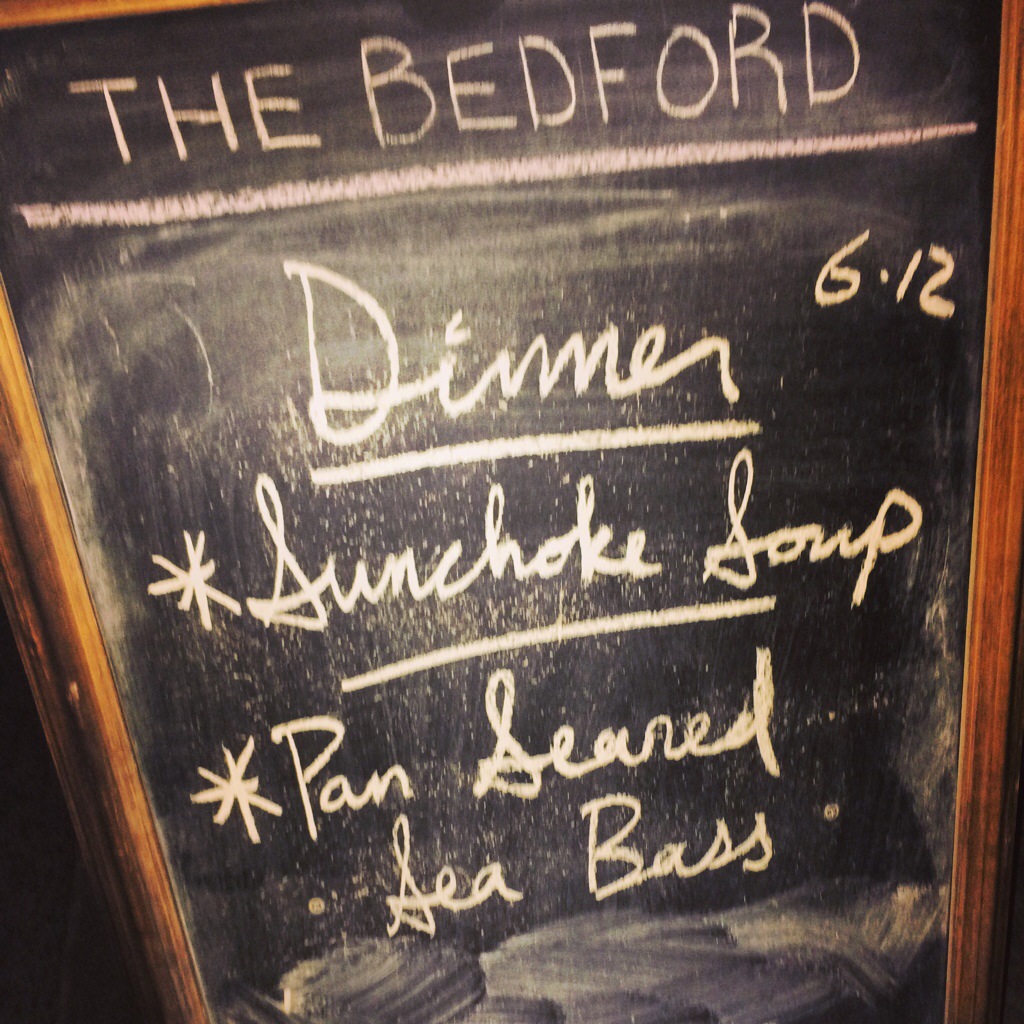 THE BEDFORD
6.12
Dinner
* Sunchoke Soup
* Pan Seared
Sea Bass